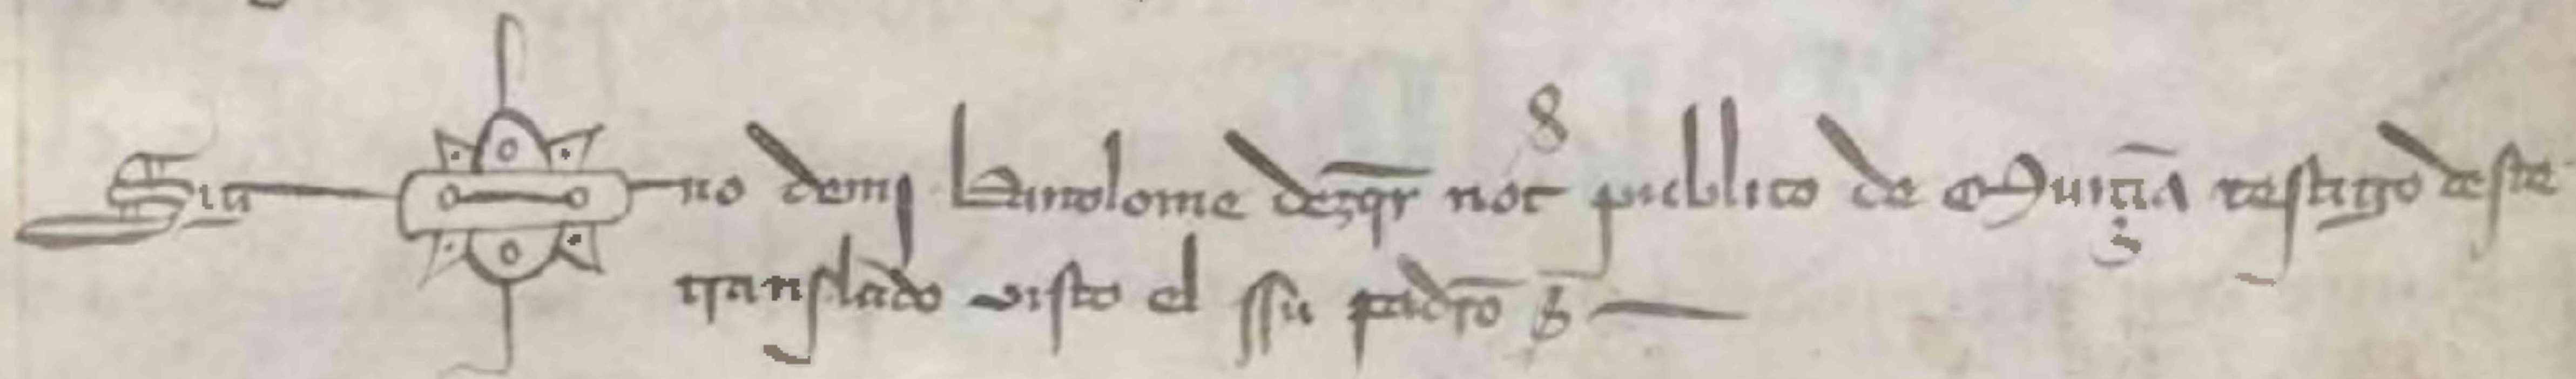 Sig no de mj Bartolome dezqr not publico de Murçia testigo deste
translado visto el ssu padro